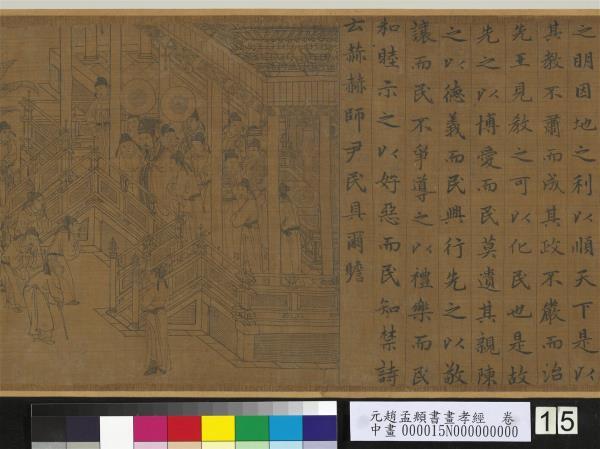 之明因地之利以順天下是以
其教不肅而成其政不嚴而治
先王見教之可以化民也是故
先之以博愛而民莫遺其親陳
之以德義而民興行先之以敬
讓而民不爭導之以禮樂而民
和睦示之以好惡而民知禁詩
云赫赫師尹民具爾瞻
元趙孟頫書畫孝經 卷
中畫 000015N000000000
15